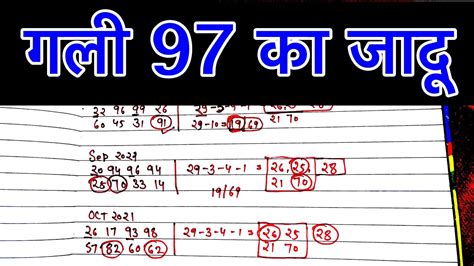 गली 97 का जादू
32 96 99 26
60 45 31 91
29-3-4-1
29-10=19,69
21 70
Sep 2021
20 94 96 94
25 70 33 14
29-3-4-1=
26, 25, 28
21 70
19/69
OCT 2021
26 17 93 98
57 82 60 62
29-3-4-1=
26 25 28
21 70